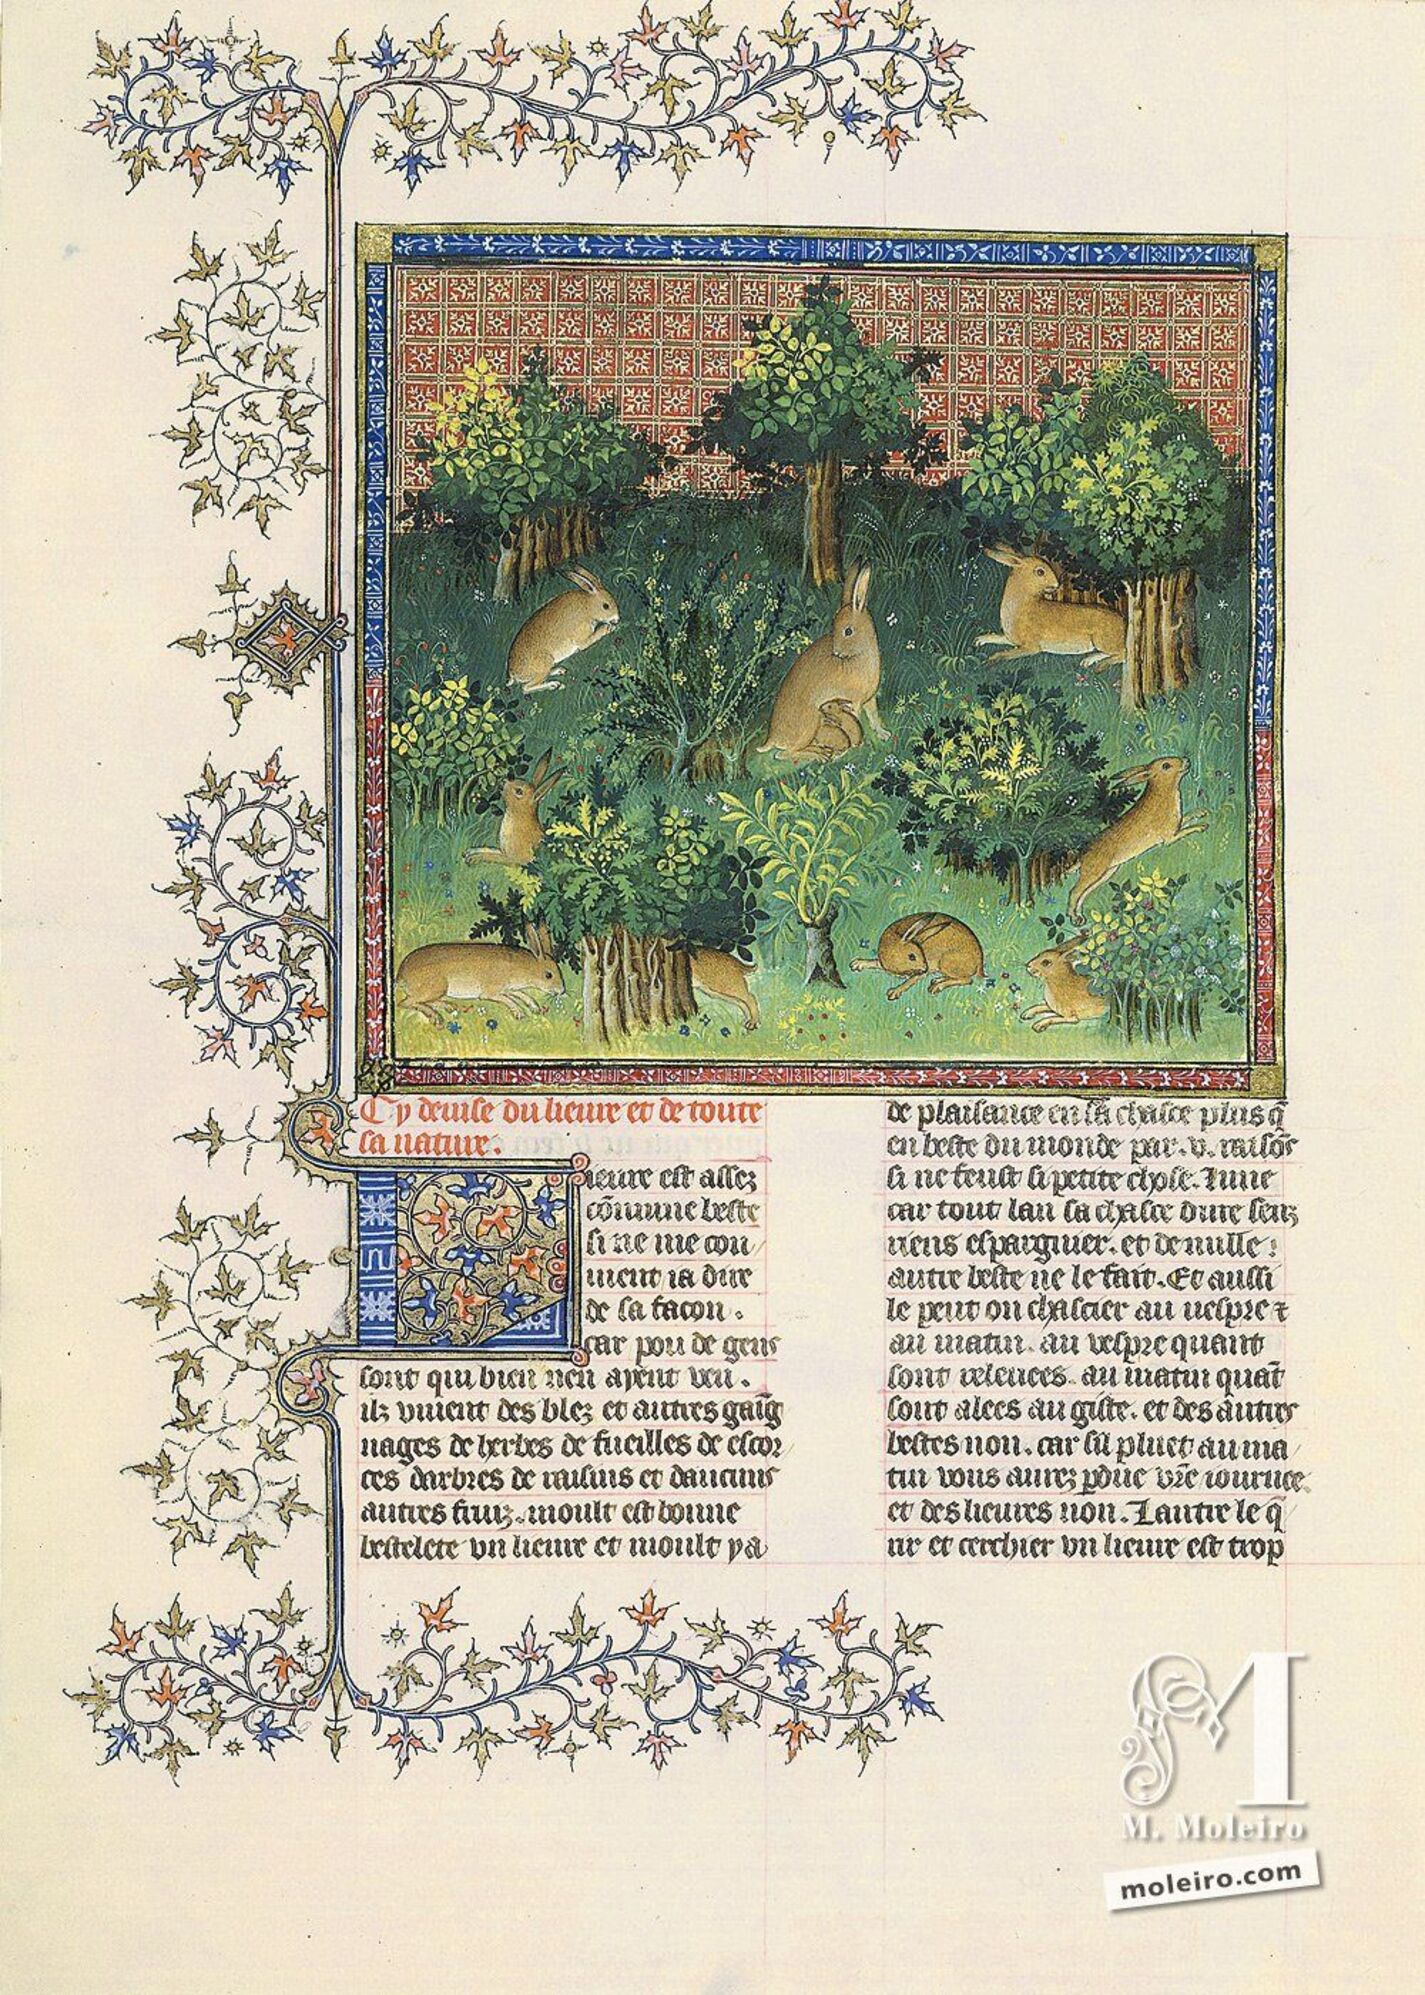 Cy deuise du lieure et de toute
sa nature.
Lieure est assez
cõmune beste
si ne me con
uient ia dire
de sa facon.
car pou de gens
sont qui bien nen ayent veu.
ilz viuent des blez et autres gaig
nages de herbes de fueilles de escor
ces darbres de raisins et daucuns
autres fruiz. moult est bonne
bestelete vn lieure et moult ya
de plaisance en sa chasce plus q̃
en beste du monde par .v. raisõs
si ne feust si petite chose. Lune
car tout lan sa chasce dure senz
riens espargnier. et de nulle
autre beste ne le fait. Et aussi
le peut on chascier au vespre et
au matin. au vespre quant
sont releuees. au matin quãt
sont alees au giste. et des autres
bestes non. car sil pluet au ma
tin vous aurez pdue vr̃e iournee.
et des lieures non. Lautre le q̃
rir et cerchier vn lieure est trop
M. Moleiro
moleiro.com